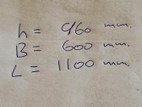 h = 960 mm.
B = 600 mm.
L = 1100 mm.